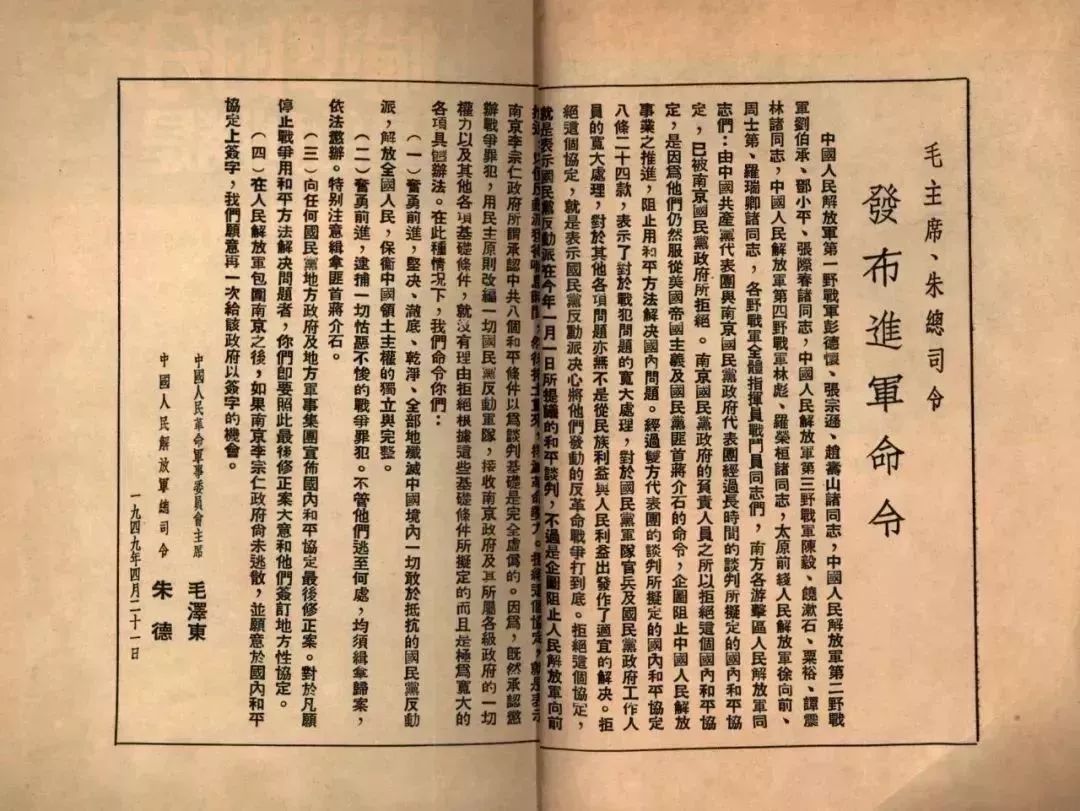 毛主席、朱總司令
發布進軍命令
中國人民解放軍第一野戰軍彭德懷、張宗遜、趙壽山諸同志，中國人民解放軍第二野戰
軍劉伯承、鄧小平、張際春諸同志，中國人民解放軍第三野戰軍陳毅、饒漱石、粟裕、譚震
林諸同志，中國人民解放軍第四野戰軍林彪、羅榮桓諸同志，太原前綫人民解放軍徐向前、
周士第、羅瑞卿諸同志，各野戰軍全體指揮員戰鬥員同志們，南方各游擊區人民解放軍同
志們：由中國共產黨代表團與南京國民黨政府代表團經過長時間的談判所擬定的國內和平協
定，已被南京國民黨政府所拒絕。南京國民黨政府的負責人員之所以拒絕這個國內和平協
定，是因為他們仍然服從美國帝國主義及國民黨匪首蔣介石的命令，企圖阻止中國人民解放
事業之推進，阻止用和平方法解決國內問題。經過雙方代表團的談判所擬定的國內和平協定
八條二十四款，表示了對於戰犯問題的寬大處理，對於國民黨軍隊官兵及國民黨政府工作人
員的寬大處理，對於其他各項問題亦無不是從民族利益與人民利益出發作了適宜的解决。拒
絕這個協定，就是表示國民黨反動派決心將他們發動的反革命戰爭打到底。拒絕這個協定，
就是表示國民黨反動派在今年一月一日所提議的和平談判，不過是企圖阻止人民解放軍向前
拒絕這個協定，就是表示
南京李宗仁政府所謂承認中共八個和平條件以爲談判基礎是完全虛僞的。因爲，旣然承認懲
辦戰爭罪犯，用民主原則改編一切國民黨反動軍隊，接收南京政府及其所屬各級政府的一切
權力以及其他各項基礎條件，就沒有理由拒絕根據這些基礎條件所擬定的而且是極爲寬大的
各項具體辦法。在此種情況下，我們命令你們：
（一）奮勇前進，堅决、澈底、乾淨、全部地殲滅中國境內一切敢於抵抗的國民黨反動
派，解放全國人民，保衞中國領土主權的獨立與完整。
（二）奮勇前進，逮捕一切怙惡不悛的戰爭罪犯。不管他們逃至何處，均須緝拿歸案，
依法懲辦。特别注意緝拿匪首蔣介石。
（三）向任何國民黨地方政府及地方軍事集團宣佈國內和平協定最後修正案。對於凡願
停止戰爭用和平方法解決問題者，你們即要照此最後修正案大意和他們簽訂地方性協定。
（四）在人民解放軍包圍南京之後，如果南京李宗仁政府尙未逃散，並願意於國內和平
協定上簽字，我們願意再一次給該政府以簽字的機會。
中國人民革命軍事委員會主席 毛澤東
中國人民解放軍總司令 朱德
一九四九年四月二十一日